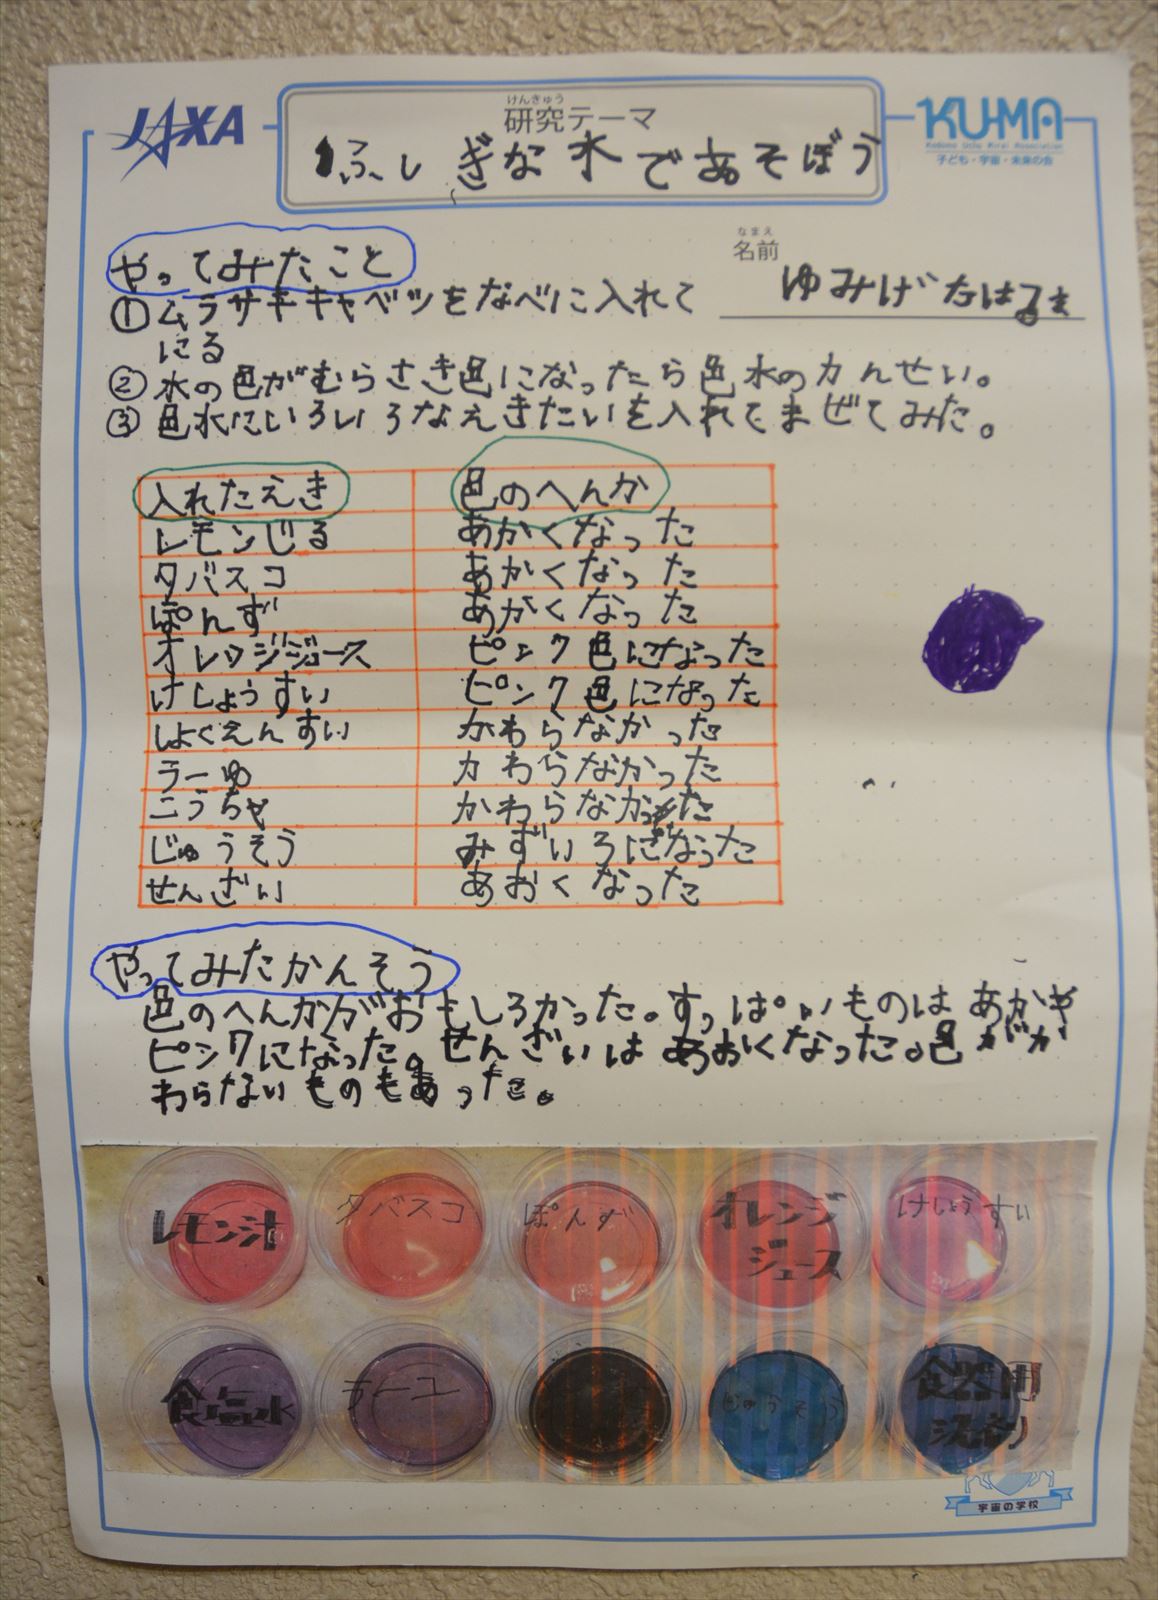 JAXA
けんきゅう
研究テーマ
ふしぎな水であそぼう
KU-MA
Kodomo Uchu Mirai Association
子ども・宇宙・未来の会
なまえ
名前
ゆみげたはるま
やってみたこと
① ムラサキキャベツをなべに入れて
にる
② 水の色がむらさき色になったら色水のカんせい。
③ 色水にいろいろなえきたいを入れてまぜてみた。
入れたえき 色のへんか
レモンじる あかくなった
タバスコ あかくなった
ぽんず あかくなった
オレンジジュース ピンク色になった
けしょうすい ピンク色になった
しょくえんすい かわらなかった
らーゆ カわらなかった
こうちゃ かわらなかった
じゅうそう みずいろになった
せんざい あおくなった
やってみたかんそう
色のへんかがおもしろかった。すっぱいものはあかや
ピンクになった。せんざいはあおくなった。色がか
わらないものもあった。
レモン汁 タバスコ ぽんず オレンジ けしょうすい
ジュース
食塩水 ラーユ じゅうそう 食器用
洗剤
宇宙の学校